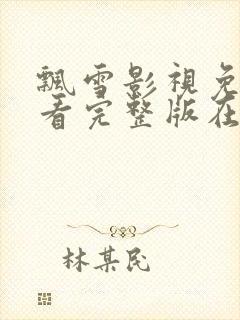 飄雪影視免
看完整版在
林某民